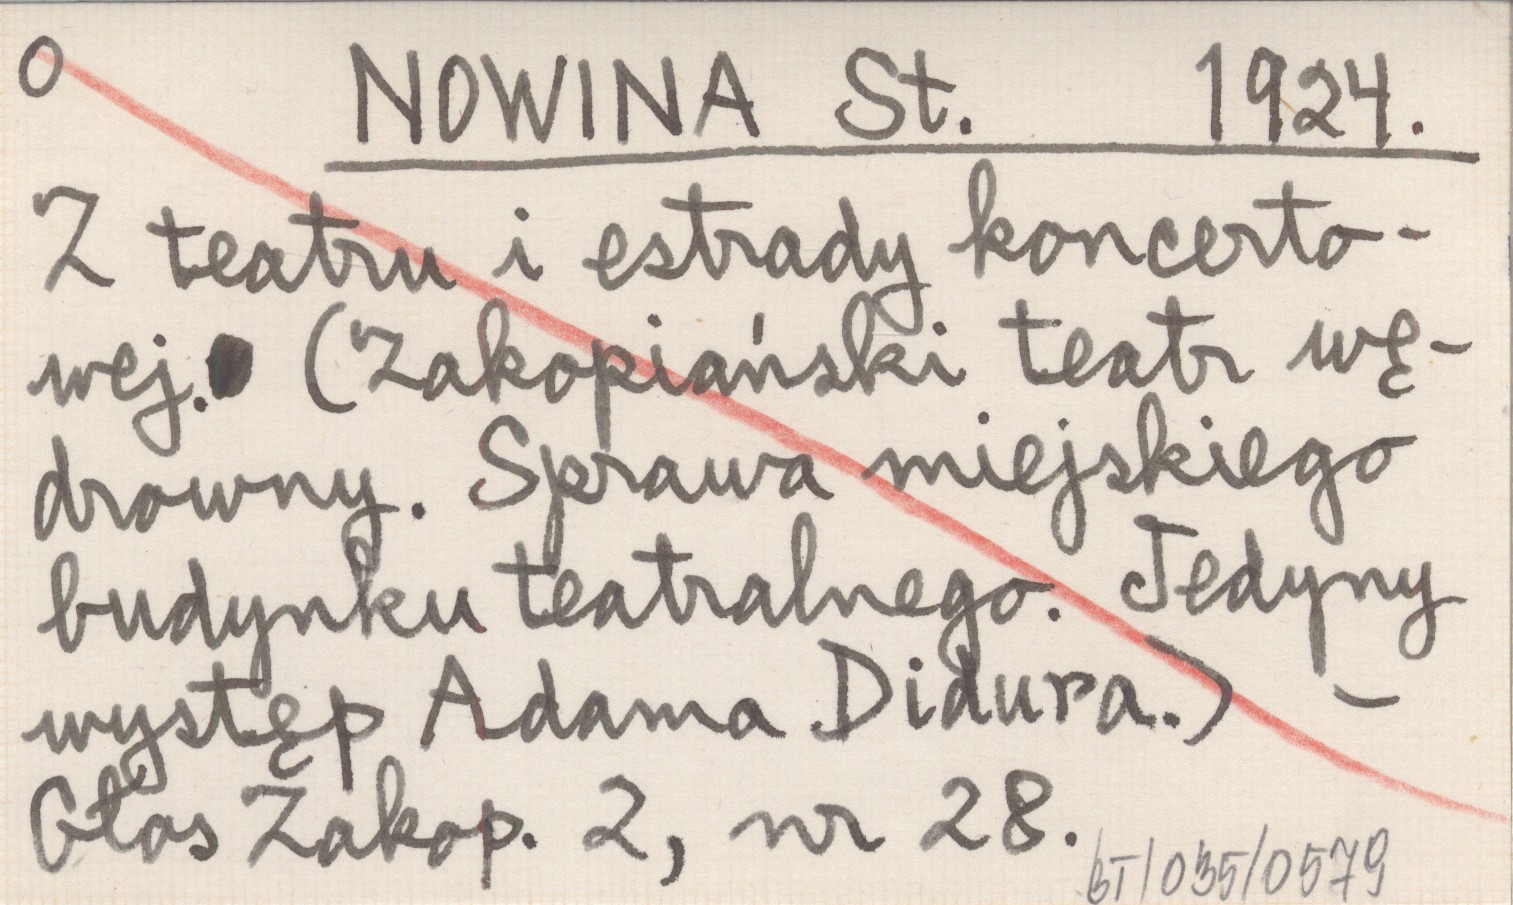 O NOWINA St. 1924.
Z teatru i estrady koncerto-
wej. (Zakopiański teatr wę-
drowny. Sprawa miejskiego
budynku teatralnego. Jedyny
występ Adama Didura.) –
Głos Zakop. 2, nr 28.
BT/035/0579